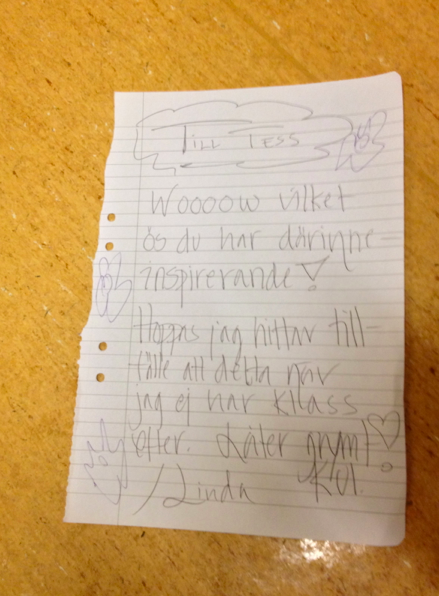 TILL TESS
Woooow vilket
ös du har därinne-
inspirerande!
Hoppas jag hittar till-
fälle att detta när
jag ej har kllass
efter. Låter grymt
/Linda Kul.